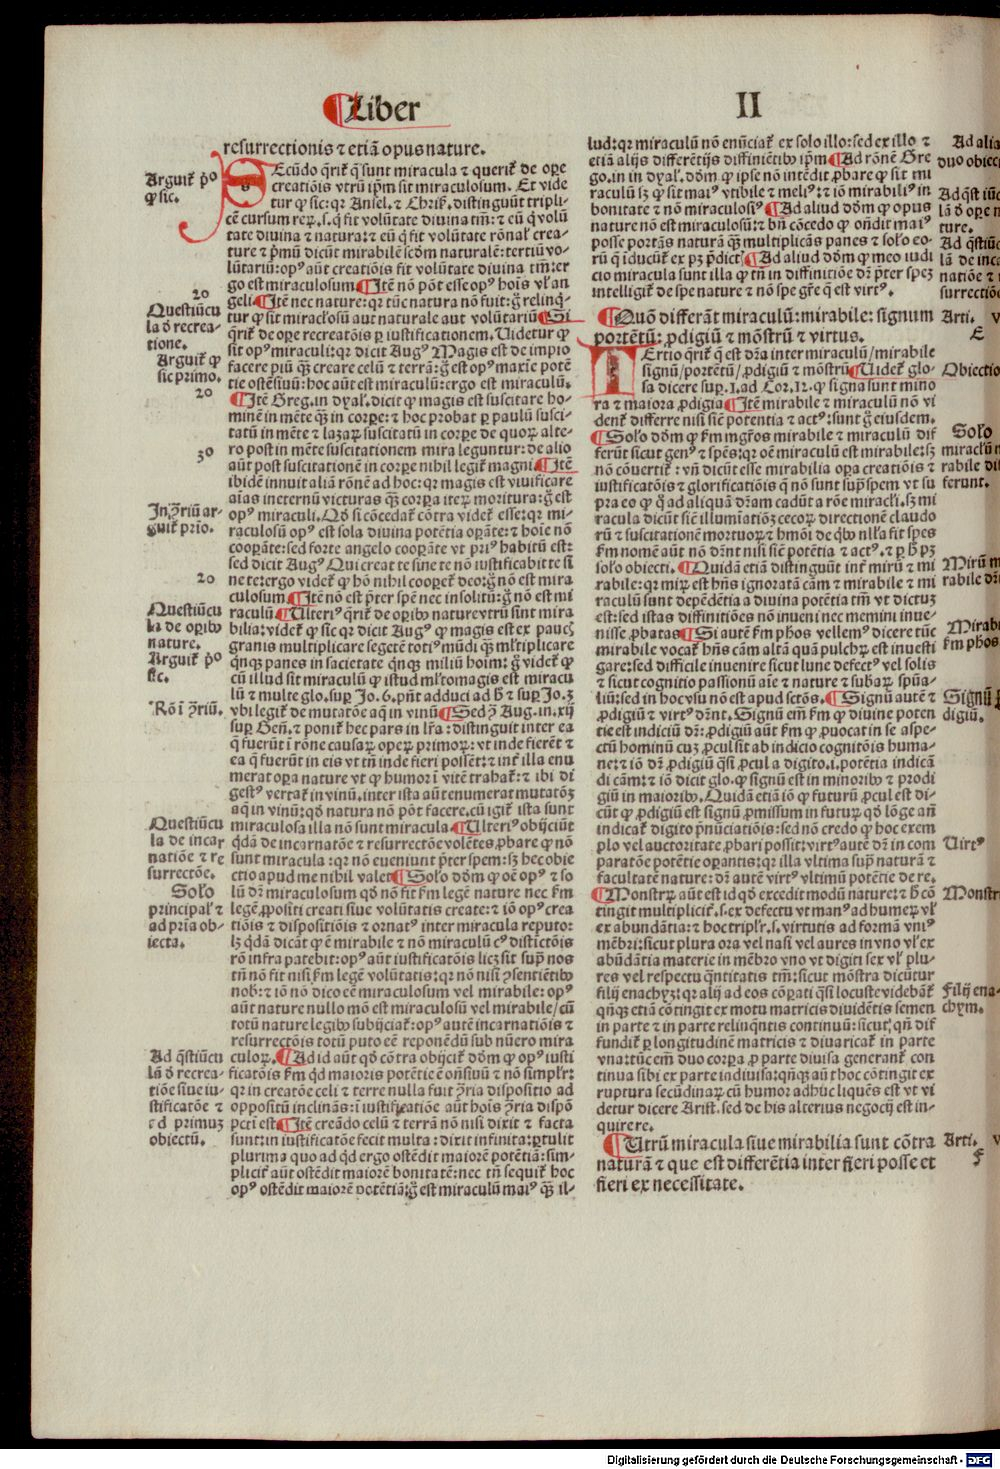 Liber
II
resurrectionis ⁊ etiā opus nature.
SEcūdo q̄rit̄ q̄ sunt miracula ⁊ querit̄ de oꝑe
creatiōis vtrū ip̄m sit miraculosum. Et vide
tur ꝙ sic: qꝛ Ansel. ⁊ Chris̄. distinguūt tripli-
cē cursum reꝝ. s. q̄ fit volūtate diuina tm̄: ⁊ eū q̄ volū
tate diuina ⁊ natura: ⁊ eū q̄ fit volūtate rōnal̄ crea-
ture ⁊ p̄mū dicūt mirabile scd̄m naturale: tertiū vo-
lūtariū: opꝰ aūt creatiōis fit volūtate diuina tm̄: er-
go est miraculosum ¶Itē nō pōt esse opꝰ hoīs vl̄ an
geli ¶Itē nec nature: qꝛ tūc natura nō fuit: g̊ relinq̄-
tur ꝙ sit miracl̓osū aut naturale aut volūtariū ¶Si
q̄rit̄ de oꝑe recreatōis ꝑ iustificationem. Uidetur ꝙ
sit opꝰ miraculi: qꝛ dicit Augꝰ Magis est de impio
facere piū q̄ꝫ creare celū ⁊ terrā: g̊ est opꝰ maxīe potē
tie ostēsiuū: hoc aūt est miraculū: ergo est miraculū.
¶Itē Greg. in dyal̓. dicit ꝙ magis est suscitare ho-
minē in mēte q̄ꝫ in corꝑe: ⁊ hoc probat ꝑ paulū susci-
tatū in mēte ⁊ lazaꝝ suscitatū in corꝑe de quoꝝ alte-
ro post in mēte suscitationem mira leguntur: de alio
aūt post suscitationē in corꝑe nihil legit̄ magni ¶Itē
ibidē innuit aliā rōnē ad hoc: qꝛ magis est viuificare
aīas ineternū victuras q̄ꝫ corꝑa iteꝝ moritura: g̊ est
opꝰ miraculi. Qd̓ si cōcedat̄ cōtra videt̄ esse: qꝛ mi-
raculosū opꝰ est sola diuina potētia oꝑāte: ⁊ hoīe nō
cooꝑāte: sed forte angelo cooꝑāte vt priꝰ habitū est:
sed dicit Augꝰ Qui creat te sine te nō iustificabit te si
ne te: ergo videt̄ ꝙ hō nihil cooꝑet̄ deo: g̊ nō est mira
culosum ¶Itē nō est p̄ter spē nec insolitū: g̊ nō est mi
raculū ¶Ulteriꝰ q̄rit̄ de oꝑibꝰ nature vtrū sint mira
bilia: videt̄ ꝙ sic qꝛ dicit Augꝰ ꝙ magis est ex paucꝭ
granis multiplicare segetē totiꝰ mūdi q̄ꝫ ml̓tiplicare
q̄nqꝫ panes in sacietate q̄nqꝫ miliū hoīm: g̊ videt̄ ꝙ
cū illud sit miraculū ꝙ istud ml̓tomagis est miracu
lū ⁊ multe glo. suꝑ Jo. 6. pn̄t adduci ad h̓ ⁊ suꝑ Jo. 3
vbi legit̄ de mutatōe aq̄ in vinū ¶Sed ꝯ̄ Aug. in. xij
suꝑ Geñ. ⁊ ponit̄ hec pars in lr̄a: distinguit inter ea
q̄ fuerūt ī rōne causaꝝ oꝑeꝝ primoꝝ: vt inde fierēt ⁊
ea q̄ fuerūt in eis vt tn̄ inde fieri possēt: ⁊ int̓ illa enu
merat oꝑa nature vt ꝙ humor ī vitē trahat̄: ⁊ ibi di
gestꝰ vertat̄ in vinū. inter ista aūt enumerat mutatōꝫ
aq̄ in vinū: qd̓ natura nō pōt facere. cū igit̄ ista sunt
miraculosa illa nō sunt miracula ¶Ulteriꝰ obijciūt̄
q̄dā de incarnatōe ⁊ resurrectōe volētes ꝓbare ꝙ nō
sunt miracula: qꝛ nō eueniunt p̄ter spem: sꝫ hec obie
ctio apud me nihil valet ¶Sol̓o dōm ꝙ oē opꝰ ⁊ so
lū dr̄ miraculosum qd̓ nō fit ẜm legē nature nec ẜm
legē ꝓpositi creati siue volūtatis create: ⁊ iō opꝰ crea
tiōis ⁊ dispositiōis ⁊ ornatꝰ inter miracula reputo:
lꝫ q̄dā dicāt ꝙ ē mirabile ⁊ nō miraculū cꝰ distictōis
rō infra patebit: opꝰ aūt iustificatōis licꝫ sit supͣ nos
tn̄ nō fit nisi ẜm legē volūtatis: qꝛ nō nisi ꝯsentiētibꝰ
nob̓: ⁊ iō nō dico eē miraculosum vel mirabile: opꝰ
aūt nature nullo mō est miraculosū vel mirabile/cū
totū nature legibꝰ subijciat̄: opꝰ autē incarnatiōis ⁊
resurrectōis totū puto eē reponēdū sub nūero mira
culoꝝ. ¶Ad id aūt qd̓ cōtra obijcit̄ dōm ꝙ opꝰ iusti
ficatōis ẜm qd̓ maioris potētie ē on̄siuū ⁊ nō simpl̓r:
qꝛ in creatōe celi ⁊ terre nulla fuit ꝯ̄ria dispositio ad
oppositū inclinās: ī iustificatiōe aūt hoīs ꝯ̄ria dispō
pcti est ¶Itē creādo celū ⁊ terrā nō nisi dixit ⁊ facta
sunt: in iustificatōe fecit multa: dixit infinita: ꝑtulit
plurima quo ad qd̓ ergo ostēdit maiorē potētiā: sim-
plicit̓ aūt ostēdit maiorē bonitatē: nec tn̄ sequit̄ hoc
opꝰ ostēdit maiorē potētiā: g̊ est miraculū maiꝰ q̄ꝫ il-
lud: qꝛ miraculū nō enūciat̄ ex solo illo: sed ex illo ⁊
etiā alijs differētijs diffiniētibꝰ ip̄m ¶Ad rōnē Gre
go. in in dyal̓. dōm ꝙ ipse nō intēdit ꝓbare ꝙ sit mi
raculū sꝫ ꝙ sit maiꝰ vtibile ⁊ meliꝰ: ⁊ iō mirabiliꝰ in
bonitate ⁊ nō miraculosiꝰ ¶Ad aliud dōm ꝙ opus
nature nō est miraculosū: ⁊ bn̄ cōcedo ꝙ on̄dit maiꝰ
posse portās naturā q̄ꝫ multiplicās panes ⁊ sol̓o eo-
rū q̄ īducūt̄ ex pꝫ p̄dict̓ ¶Ad aliud dōm ꝙ meo iudi
cio miracula sunt illa ꝙ tn̄ in diffinitiōe dn̄ p̄ter speꝫ
intelligit̄ de spe nature ⁊ nō spe gr̄e q̄ est virtꝰ.
¶Quō differāt miraculū: mirabile: signum
portētū: ꝓdigiū ⁊ mōstrū ⁊ virtus.
TErtio q̄rit̄ q̄ est dr̄a inter miraculū/mirabile
signū/portētū/ꝓdigiū ⁊ mōstrū ¶Uidet̄ glo-
sa dicere suꝑ. 1. ad Cor. 12. ꝙ signa sunt mino
ra ⁊ maiora ꝓdigia ¶Itē mirabile ⁊ miraculū nō vi
dent̄ differre nisi sic̄ potentia ⁊ actꝰ: sunt g̊ eiusdem.
¶Sol̓o dōm ꝙ ẜm mgr̄os mirabile ⁊ miraculū dif
ferūt sicut genꝰ ⁊ spēs: qꝛ oē miraculū est mirabile: sꝫ
nō cōuertit̄: vn̄ dicūt esse mirabilia oꝑa creatiōis ⁊
iustificatōis ⁊ glorificatiōis q̄ nō sunt supͣ spem vt su
pra eo ꝙ q̄ ad aliquā dr̄am cadūt a rōe miracl̓i. sꝫ mi
racula dicūt sic̄ illumiatiōꝫ cecoꝝ directionē claudo
rū ⁊ suscitationē mortuoꝝ ⁊ hmōi de q̄bꝰ nll̓a fit spes
ẜm nomē aūt nō dr̄nt nisi sic̄ potētia ⁊ actꝰ. ⁊ ꝑ h̓ pꝫ
sol̓o obiecti. ¶Quidā etiā distinguūt int̓ mirū ⁊ mi
rabile: qꝛ miꝝ est hn̄s ignoratā cām ⁊ mirabile ⁊ mi
raculū sunt depēdētia a diuina potētia tm̄ vt dictuꝫ
est: sed istas diffinitiōes nō inueni nec memini inue-
nisse ꝓbatas ¶Si autē ẜm ph̄os vellemꝰ dicere tūc
mirabile vocat̄ hn̄s cām altā quā pulchꝝ est inuesti
gare: sed difficile inuenire sicut lune defectꝰ vel solis
⁊ sicut cognitio passionū aīe ⁊ nature ⁊ subaꝝ spūa-
liū: sed in hoc vsu nō est apud sctōs. ¶Signū autē ⁊
ꝓdigiū ⁊ virtꝰ dr̄nt. Signū em̄ ẜm ꝙ diuine poten
tie est indiciū dr̄: ꝓdigiū aūt ẜm ꝙ ꝓuocat in se aspe-
ctū hominū cuꝫ ꝓcul sit ab indicio cognitōis huma-
ne: ⁊ iō dr̄ ꝓdigiū q̄si ꝓcul a digito. i. potētia indicā
di cām: ⁊ iō dicit glo. ꝙ signū est in minoribꝰ ⁊ prodi
giū in maioribꝰ. Quidā etiā iō ꝙ futurū ꝓcul est di-
cūt ꝙ ꝓdigiū est signū ꝓmissum in futuꝝ qd̓ lōge añ
indicat̄ digito pn̄ūciatiōis: sed nō credo ꝙ hoc exem
plo vel auctoritate ꝓbari possit: virtꝰ autē dr̄ in com
paratōe potētie oꝑantis: qꝛ illa vltima supͣ naturā ⁊
facultatē nature: dr̄ autē virtꝰ vltimū potētie de re.
¶Monstꝝ aūt est id qd̓ excedit modū nature: ⁊ h̓ cō
tingit multiplicit̓. s. ex defectu vt manꝰ ad humeꝝ vl̓
ex abundātia: ⁊ hoc tripl̓r. s. virtutis ad formā vniꝰ
mēbri: sicut plura ora vel nasi vel aures in vno vl̓ ex
abūdātia materie in mēbro vno vt digiti sex vl̓ plu-
res vel respectu q̄ntitatis tm̄: sicut mōstra dicūtur
filij enachyꝫ: qꝛ alij ad eos cōꝑati q̄si locuste videbāt̄
qn̄qꝫ etiā cōtingit ex motu matricis diuidētis semen
in parte ⁊ in parte relinqn̄tis continuū: sicut qn̄ dif
fundit̄ ꝑ longitudinem matricis ⁊ diuaricat̄ in parte
vna: tūc em̄ duo corꝑa ꝓ parte diuisa generant̄ con
tinua sibi ex parte indiuisa: qn̄qꝫ aūt hoc cōtingit ex
ruptura secūdinaꝝ cū humor adhuc liquēs est vt vi
detur dicere Arist̄. sed de his alterius negocij est in-
quirere.
¶Utrū miracula siue mirabilia sunt cōtra
naturā ⁊ que est differētia inter fieri posse et
fieri ex necessitate.
Arguit̄ p̊
ꝙ sic.
20
Questiūcu
la d̓ recrea-
tione.
Arguit̄ ꝙ
sic primo.
20
30
In ꝯ̄riū ar-
guit̄ prīo.
20
Questiūcu
la de oꝑibꝰ
nature.
Arguit̄ p̊
sic.
Rō ī ꝯ̄riū.
Questiūcu
la de incar
natiōe ⁊ re
surrectōe.
Sol̓o
principal̓ ⁊
ad pria ob-
iecta.
Ad q̄stiūcu
lā d̓ recrea-
tiōe siue iu-
stificatōe ⁊
ad primuꝫ
obiectū.
Ad alia
duo obiec
Ad q̄st iūc
lā d̓ oꝑe n
ture.
Ad q̄stiūc
lā de inca
natiōe ⁊
surrectiōe
Arti. v
E
Obiectio
Sol̓o
miracl̓m
rabile di
ferunt.
Mirū m
rabile dr̄
Mirabi
ẜm phos
Signū ꝓ
digiū.
Uirtꝰ
Monstr
Filij ena-
chym.
Arti. v
F
Digitalisierung gefördert durch die Deutsche Forschungsgemeinschaft - DFG